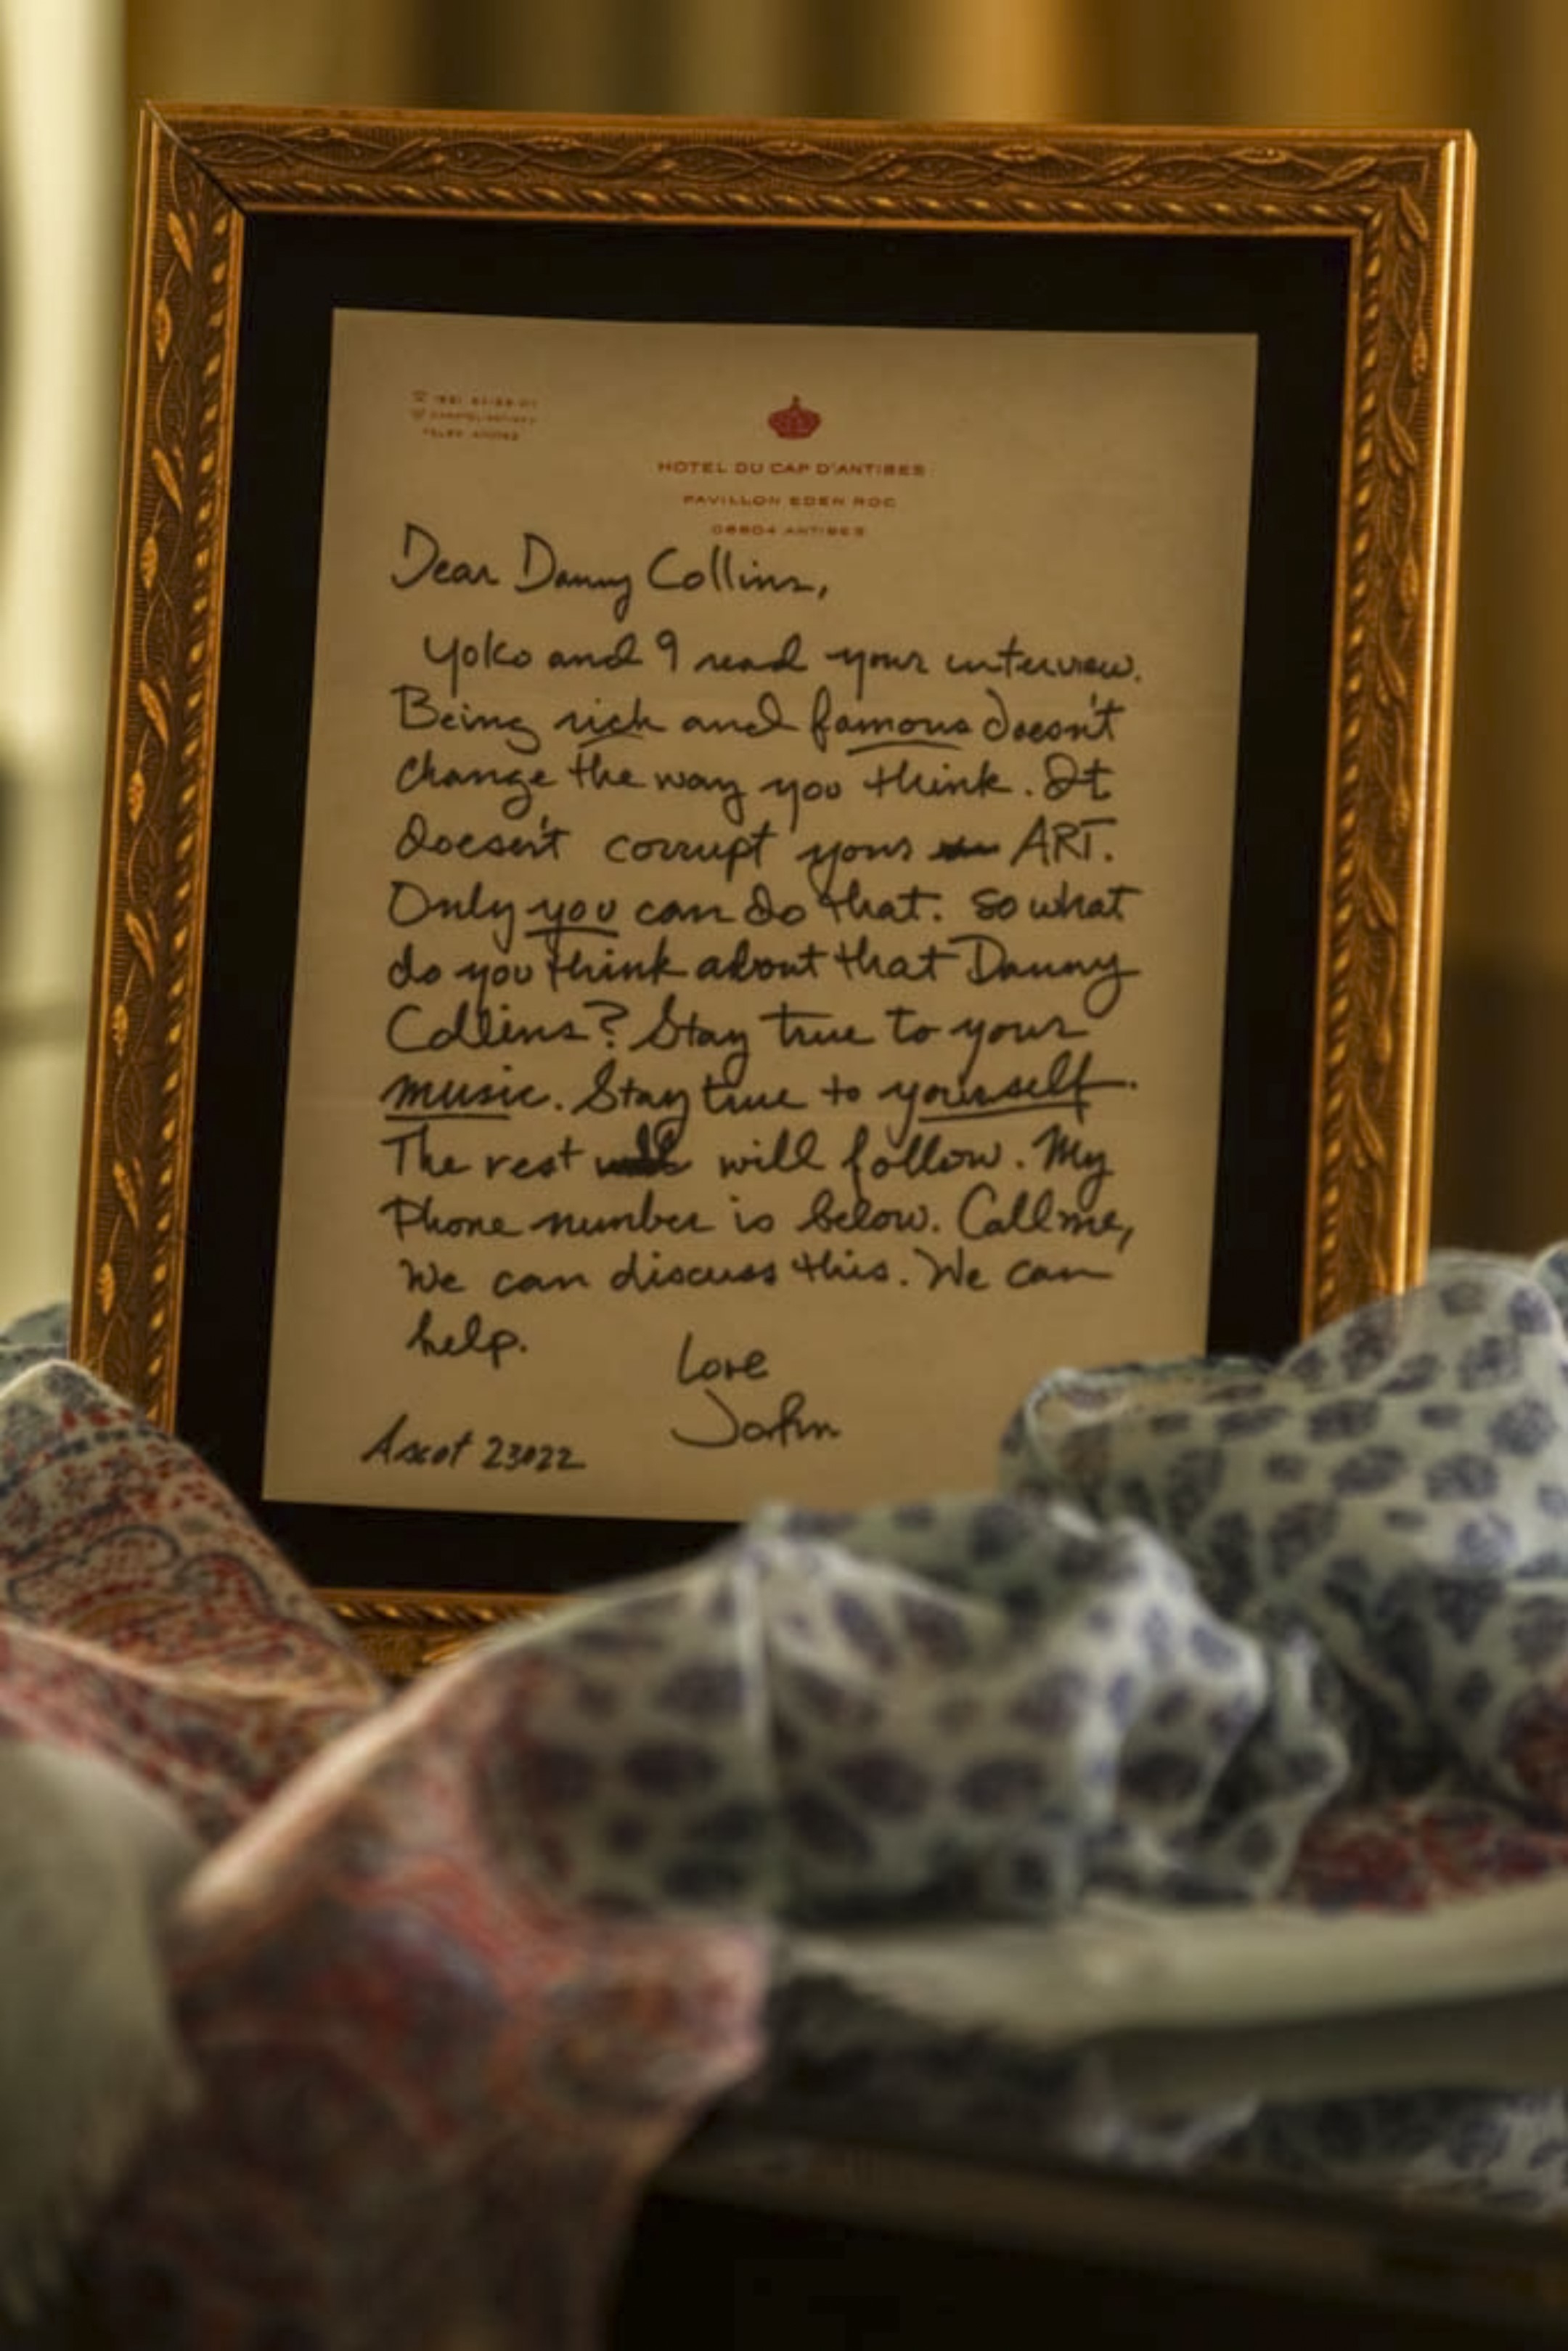 HOTEL DU CAP D'ANTIBES
PAVILLON EDEN ROC
06604 ANTIBES
Dear Danny Collins,
Yoko and I read your interview.
Being rich and famous doesn't
change the way you think. It
doesn't corrupt your ART.
Only you can do that. So what
do you think about that Danny
Collins? Stay true to your
music. Stay true to yourself.
The rest will follow. My
Phone number is below. Call me,
We can discuss this. We can
help.
Love
John
Ascot 23022